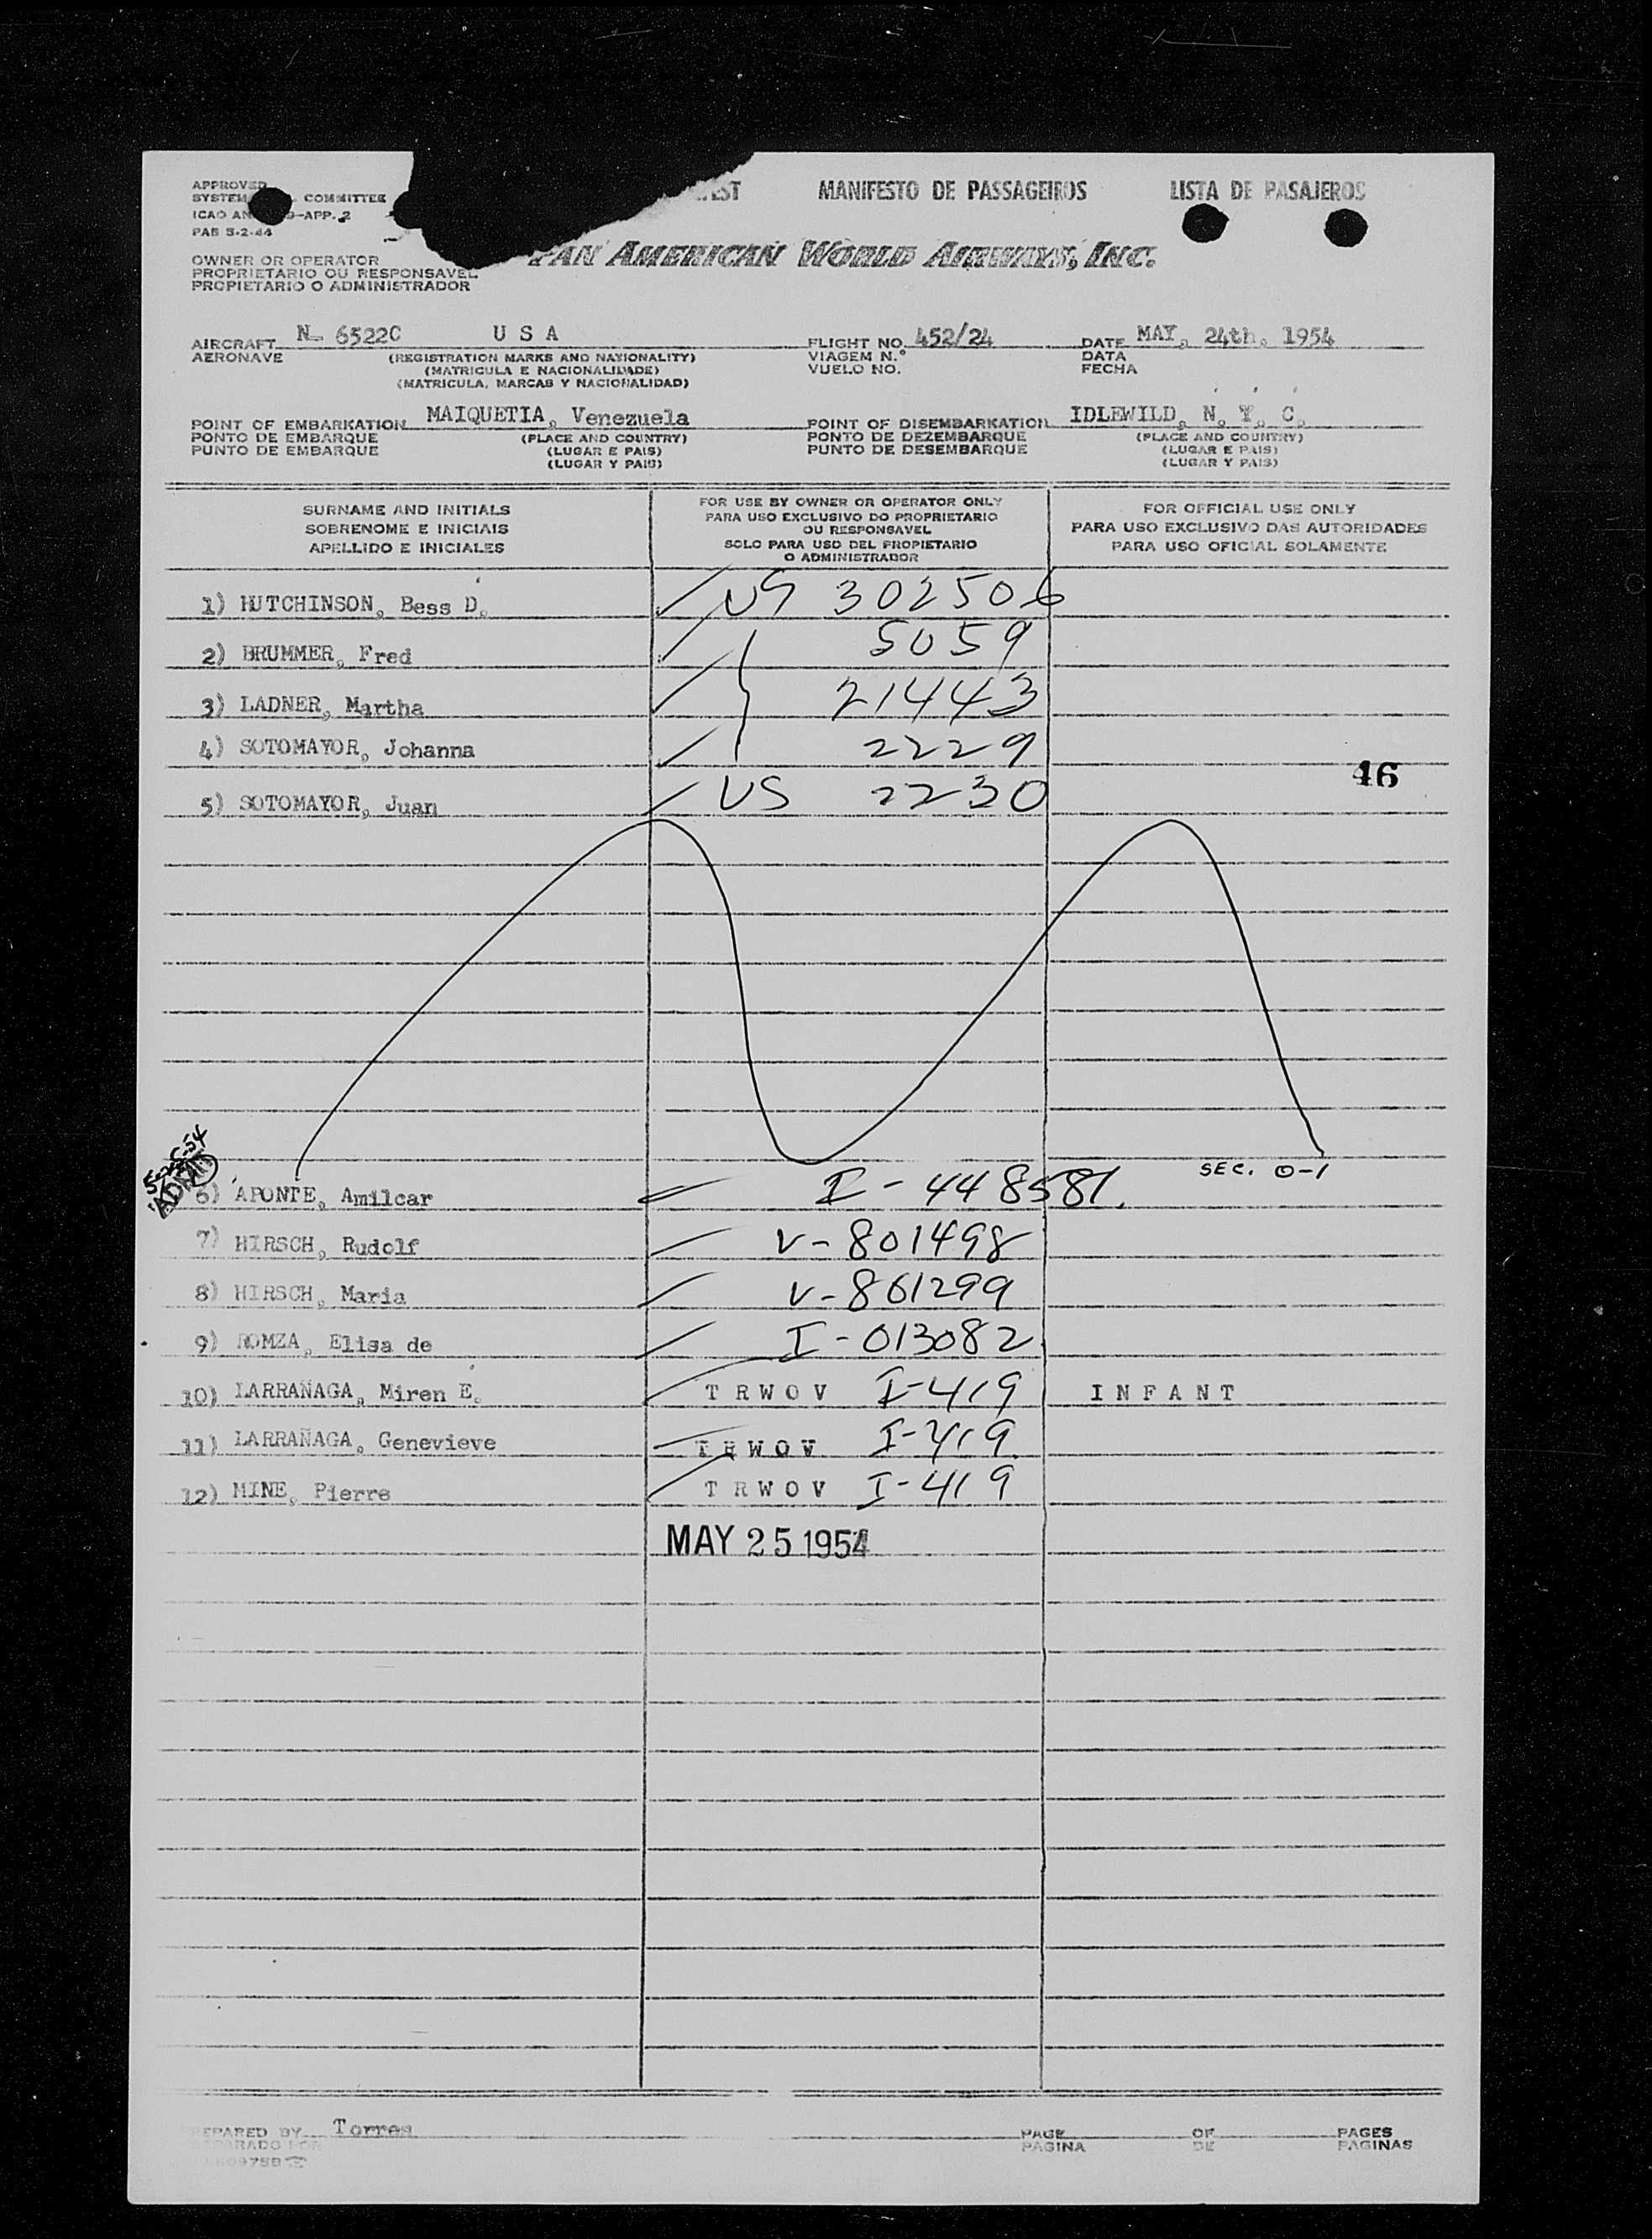 APPROVED MANIFESTO DE PASSAGEIROS LISTA DE PASAJEROS
SYSTEM COMMITTEE
ICAO AN 9-APP. 2
PAB 5-2-44
PAN AMERICAN WORLD AIRWAYS, INC.
OWNER OR OPERATOR
PROPRIETARIO OU RESPONSAVEL
PROPIETARIO O ADMINISTRADOR
AIRCRAFT N- 6522C U S A FLIGHT NO. 452/24 DATE MAY, 24th, 1954
AERONAVE (REGISTRATION MARKS AND NATIONALITY) VIAGEM N.° DATA
(MATRICULA E NACIONALIDADE) VUELO NO. FECHA
(MATRICULA, MARCAS Y NACIONALIDAD)
POINT OF EMBARKATION MAIQUETIA, Venezuela POINT OF DISEMBARKATION IDLEWILD, N. Y. C.
PONTO DE EMBARQUE (PLACE AND COUNTRY) PONTO DE DEZEMBARQUE (PLACE AND COUNTRY)
PUNTO DE EMBARQUE (LUGAR E PAIS) PUNTO DE DESEMBARQUE (LUGAR E PAIS)
(LUGAR Y PAIS) (LUGAR Y PAIS)
SURNAME AND INITIALS
SOBRENOME E INICIAIS
APELLIDO E INICIALES
FOR USE BY OWNER OR OPERATOR ONLY
PARA USO EXCLUSIVO DO PROPRIETARIO
OU RESPONSAVEL
SOLO PARA USO DEL PROPIETARIO
O ADMINISTRADOR
FOR OFFICIAL USE ONLY
PARA USO EXCLUSIVO DAS AUTORIDADES
PARA USO OFICIAL SOLAMENTE
1) HUTCHINSON, Bess D. US 302506
2) BRUMMER, Fred 5059
3) LADNER, Martha 21443
4) SOTOMAYOR, Johanna 2229
46
5) SOTOMAYOR, Juan US 2230
5-25-54
ADM
SEC. 0-1
6) APONTE, Amilcar I-448581
7) HIRSCH, Rudolf V-801498
8) HIRSCH, Maria V-861299
9) ROMZA, Elisa de I-013082
10) LARRAÑAGA, Miren E. T R W O V I-419 I N F A N T
11) LARRAÑAGA, Genevieve T R W O V I-419
12) MINE, Pierre T R W O V I-419
MAY 25 1954
PREPARED BY Torres PAGE OF PAGES
PAGINA DE PAGINAS